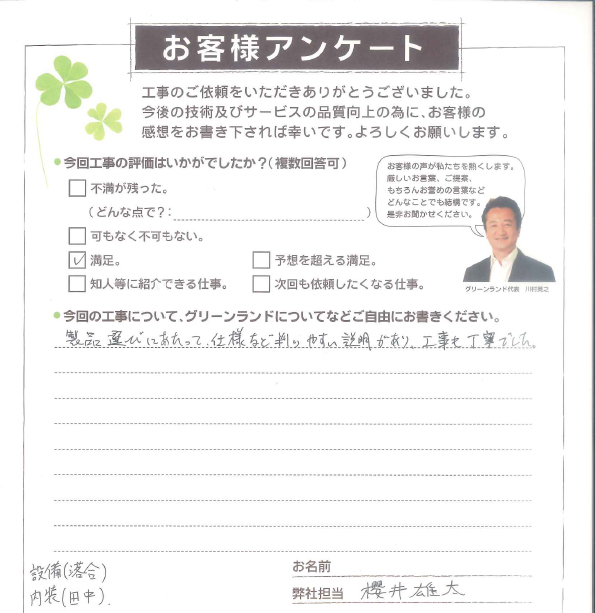 お客様アンケート
工事のご依頼をいただきありがとうございました。
今後の技術及びサービスの品質向上の為に、お客様の
感想をお書き下されば幸いです。よろしくお願いします。
●今回工事の評価はいかがでしたか？（複数回答可）
不満が残った。
（どんな点で？：　）
可もなく不可もない。
満足。
予想を超える満足。
知人等に紹介できる仕事。
次回も依頼したくなる仕事。
お客様の声が私たちを熱くします。
厳しいお言葉、ご提案、
もちろんお誉めの言葉など
どんなことでも結構です。
是非お聞かせください。
グリーンランド代表　川村寛之
●今回の工事について、グリーンランドについてなどご自由にお書きください。
製品選びにあたって、仕様など判りやすい説明があり、工事も丁寧でした。
設備(落合)
内装(田中).
お名前
弊社担当　櫻井雄大